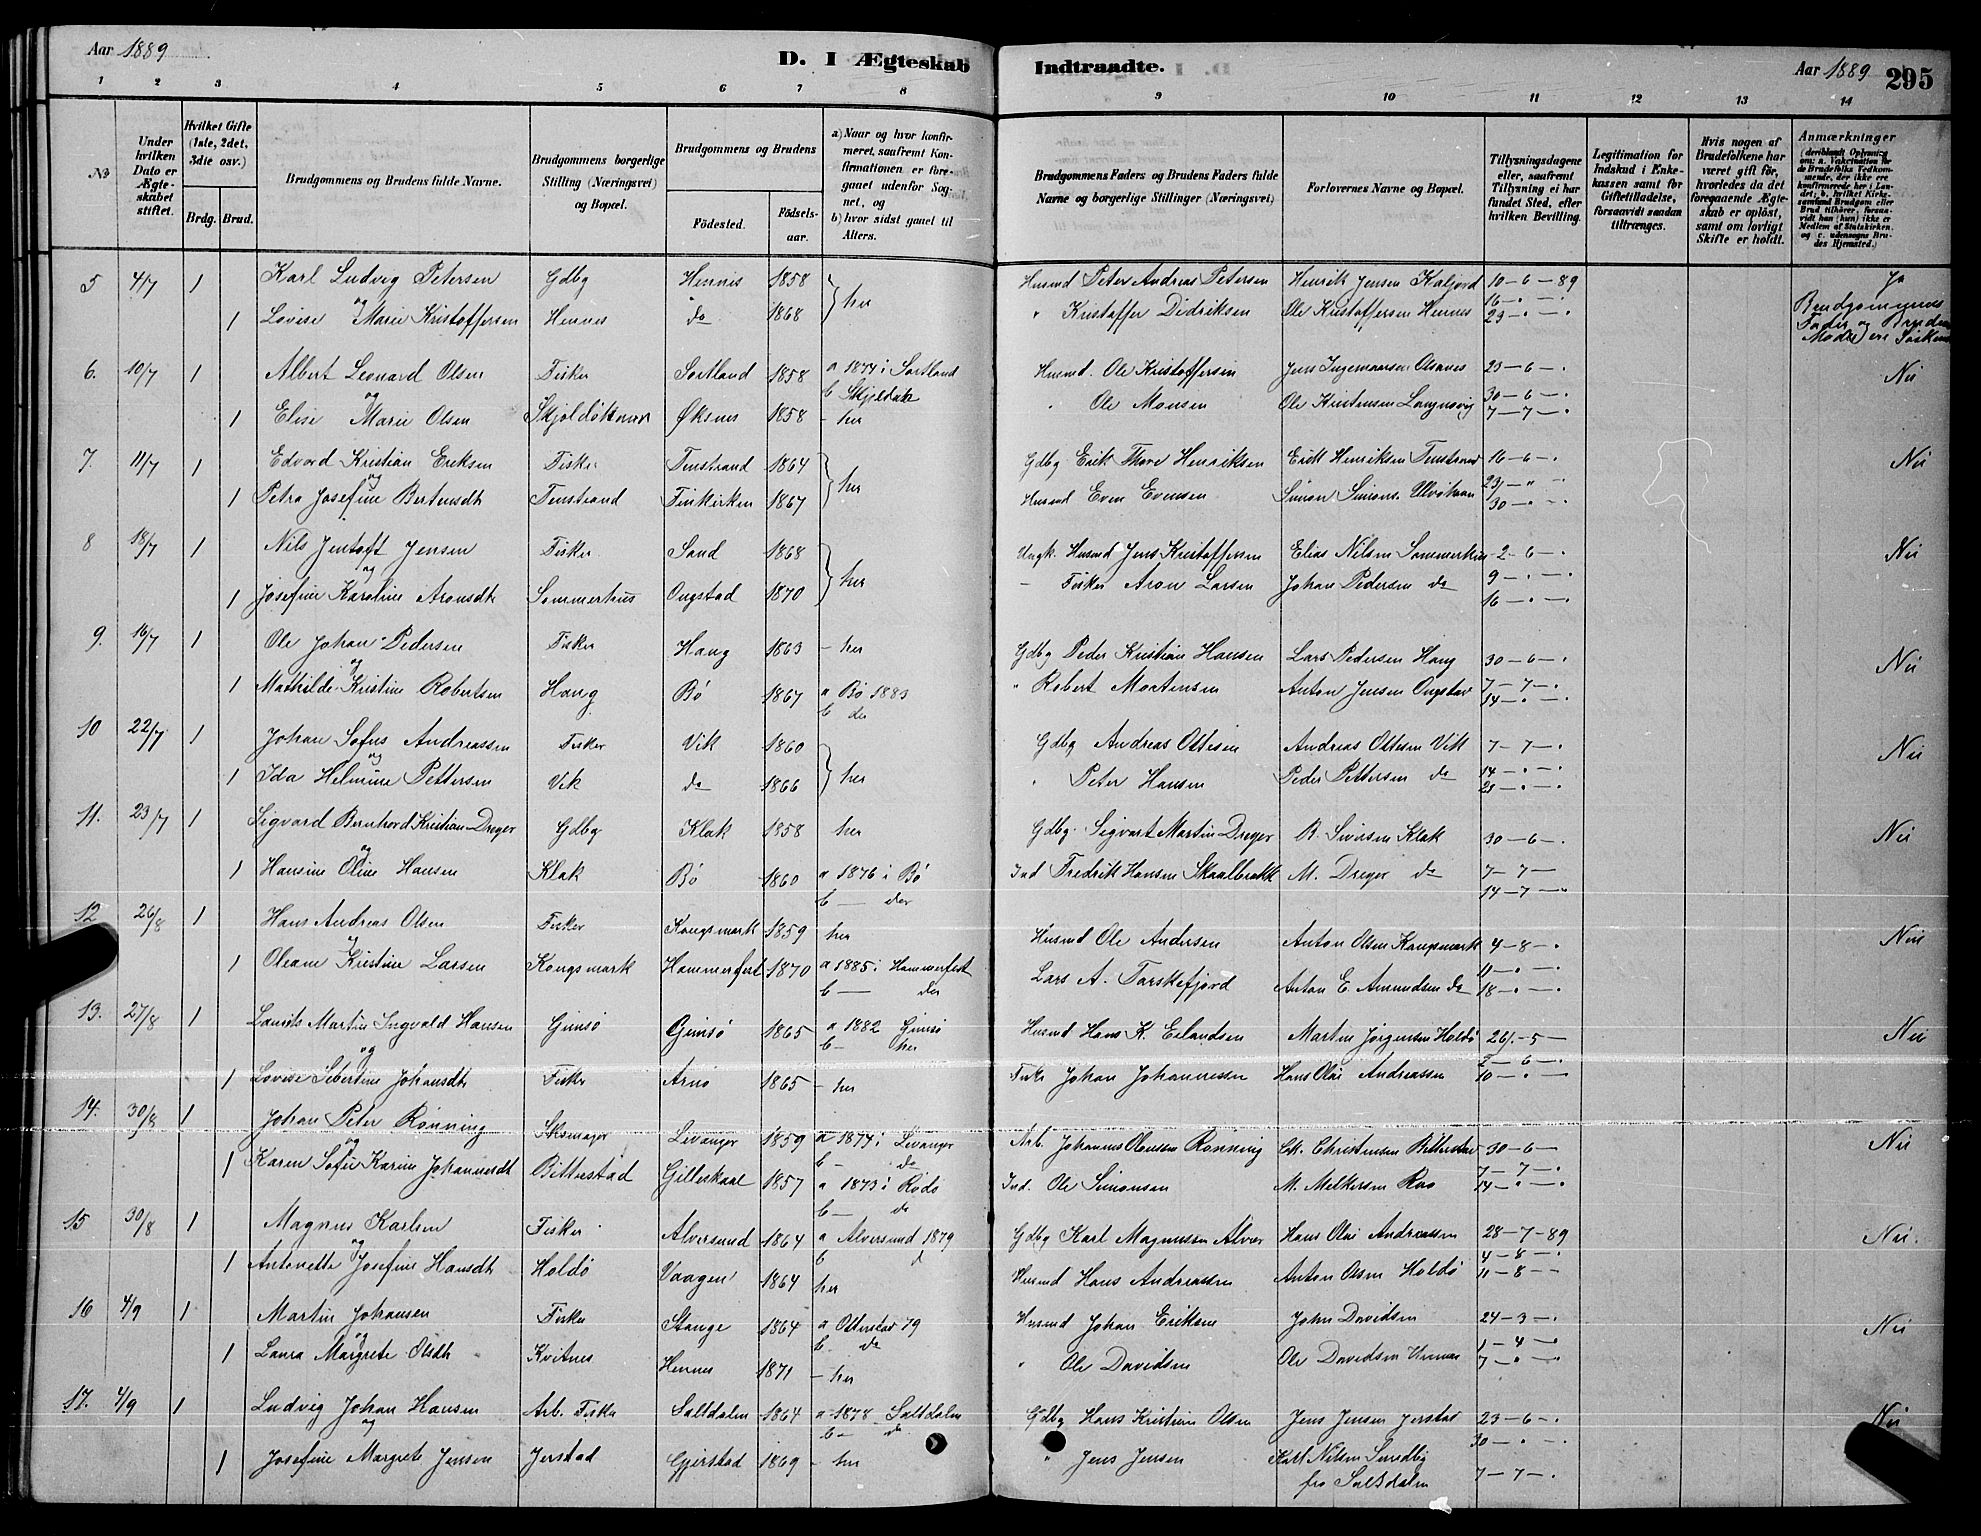 Aar 1889
D. I Ægteskab Indtraadte.
Aar 1889 295
1 2 3 4 5 6 7 8 9 10 11 12 13 14
No
Under hvilken Dato er Ægteskabet stiftet.
Hvilket Gifte (1ste, 2det, 3die osv.)
Brdg. Brud.
Brudgommens og Brudens fulde Navne.
Brudgommens borgerlige Stilling (Næringsvei) og Bopæl.
Brudgommens og Brudens
Födested. Födselsaar.
a) Naar og hvor konfirmeret, saafremt Konfirmationen er foregaaet udenfor Sognet, og
b) hvor sidst gaaet til Alters.
Brudgommens Faders og Brudens Faders fulde Navne og borgerlige Stillinger (Næringsvei)
Forlovernes Navne og Bopæl.
Tillysningsdagene eller, saafremt Tillysning ei har fundet Sted, efter hvilken Bevilling.
Legitimation for Indskud i Enkekassen samt for Giftetilladelse, forsaavidt saadan tiltrænges.
Hvis nogen af Brudefolkene har været gift før, hvorledes da det foregaaende Ægteskab er oplöst, samt om lovligt Skifte er holdt.
Anmærkninger (deriblandt Oplysning om: a. Vakcination for de Brudefolks Vedkommende, der ikke ere konfirmerede her i Landet; b. hvilket Kirkesamfund Brudgom eller Brud tilhörer, forsaavidt han (hun) ikke er Medlem af Statskirken, og c. udensogns Brudes Hjemsted.)
5 4/7 1 Karl Ludvig Petersen Gdbg Hennes 1858 } her Husmd Peter Andreas Petersen Henrik Jensen Kaljord 10-6-89 Ja
og 16 - " - "
1 Lovise Marie Kristoffersen Hennes do 1868 " Kristoffer Didriksen Ole Kristoffersen Hennes 23 - " - " Brudgommens Fader og Brudens Moder ere Söskende
6. 10/7 1 Albert Leonard Olsen Fisker Sortland 1858 a 1874 i Sortland Husmd. Ole Kristoffersen Jens Ingemarsen 23-6-" Nei
og b Skjeldok 30-6-"
1 Elise Marie Olsen Øksnes 1858 - her " Ole Monsen Ole Kristensen 7-7-"
7. 11/7 1 Edvard Kristian Eriksen Fisker Tunstrand 1864 } her Gdbg Erik Thore Henriksen Erik Henriksen Tunstrand 16-6-" Nei
og 23 - " - "
1 Petra Josefine Berntsdtr Tunstrand Finkirken 1867 Husmd Even Evensen Simon Simons 30 - " - "
8 18/7 1 Nils Jentoft Jensen Fisker Sand 1868 } her Ungk. Husmd Jens Kristoffersen Elias Nilsen Sommerhus 2-6-" Nei
og 9 - " - "
1 Josefine Karoline Aronsdtr Sommerhus Ongstad 1870 - Fisker Aron Larsen Johan Pedersen do 16 - " - "
9. 16/7 1 Ole Johan Pedersen Fisker Haug 1863 - her Gdbg Peder Kristian Hansen Lars Pedersen Haug 30-6-" Nei
og
1 Mathilde Kristine Robertsen Haug Bö 1867 a Bö 1883 " Robert Mortensen Anton Jensen Ongstad 7-7-"
b do 14 - " - "
10 22/7 1 Johan Sofus Andreassen Fisker Vik 1860 } her Gdbg Andreas Ottesen Andreas Ottesen Vik 7-7-" Nei
og 14 - " - "
1 Ida Helmine Pettersen Vik do 1866 " Peter Hansen Peder Pettersen do 21 - " - "
11. 23/7 1 Sigvard Bernhard Kristian Dreyer Gdbg Klak 1858 her Gdbg. Sigvart Martin Dreyer B. Sivösen Klak 30-6-" Nei
og
1 Hansine Oline Hansen Klak Bö 1860 a 1876 i Bö Ind Fredrik Hansen Skaalbrekk M. Dreyer do 7-7-
b — der 14-7-"
12 26/8 1 Hans Andreas Olsen Fisker Kongsmark 1859 her Husmd Ole Andersen Anton Olsen Kongsmark 4-8-" Nei
og 11 - " - "
1 Oleane Kristine Larsen Kongsmark Hammerfest 1870 a 1885 i Hammerfest Lars A. Torskefjord Anton E. Amundsen do 18 - " - "
b — der
13. 27/8 1 Laurits Martin Ingvald Hansen Gimsö Gimsö 1865 a 1882 Gimsö Husmd Hans K. Erlandsen Martin Jörgensen Holdö 26-5- Nei
og b - her 2-6-"
1 Lovise Sebertine Johansdtr Fisker Arnö 1865 - her Fisker Johan Johannessen Hans Olai Andreassen 10 - " - "
14. 30/8 1 Johan Peter Rönning Skomager Levanger 1859 a 1874 i Levanger Arb. Johannes Olaussen Rönning Ole Christensen Bitterstad 30-6- Nei
og b - do 7-7-"
1 Karen Sofie Karine Johannesdtr Bitterstad Gilleskaal 1857 a 1873 i Rödö Ind. Ole Simonsen M. Melkersen Rao 14 - " - "
b - do
15 30/8 1 Magnus Karlsen Fisker Alversund 1864 a Alversund 1879 Gdbg Karl Magnussen Alver Hans Olai Andreassen 28-7-89 Nei.
og b d 4-8-"
1 Antonette Josefine Hansdtr Holdö Vaagen 1864 her Husmd Hans Andreassen Anton Olsen Holdö 11-8-"
16 4/9 1 Martin Johansen Fisker Stange 1864 a Ottestad 79 Husmd Johan Eriksen John Davidsen 24-3-" Nei
og b do 1-4-"
1 Laura Margrete Olsdtr Kvitnes Hennes 1871 - her " Ole Davidsen Ole Davidsen Hennes 7 - " - "
17. 4/9 1 Ludvig Johan Hansen Arb. Fisker Saltdalen 1864 a 1878 Saltdalen Gdbg Hans Kristian Olsen Jens Jensen Jerstad 23-6-" Nei
og b - do 30 - " - "
1 Josefine Margrete Jensen Jerstad Gjerstad 1869 - her " Jens Jensen Karl Nilsen Sundby 7-7-"
fra Saltdalen